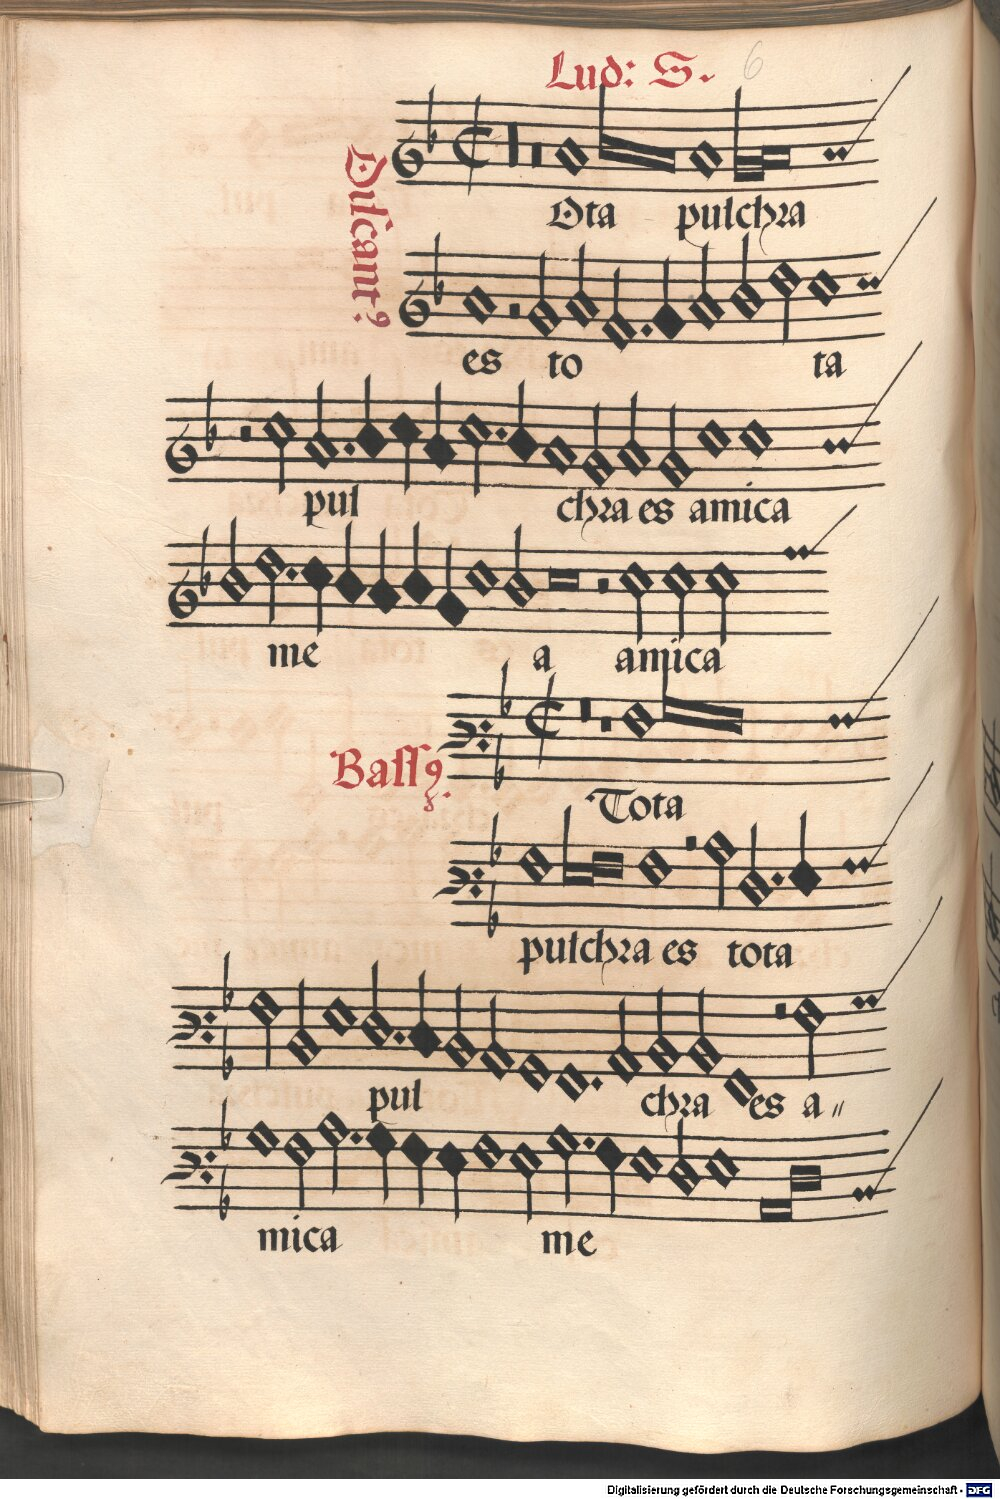 Lud: S.
6
Discant9
Ota pulchra
es to ta
pul chra es amica
me a amica
Bass9.
Tota
pulchra es tota
pul chra es a
mica me
Digitalisierung gefördert durch die Deutsche Forschungsgemeinschaft - DFG